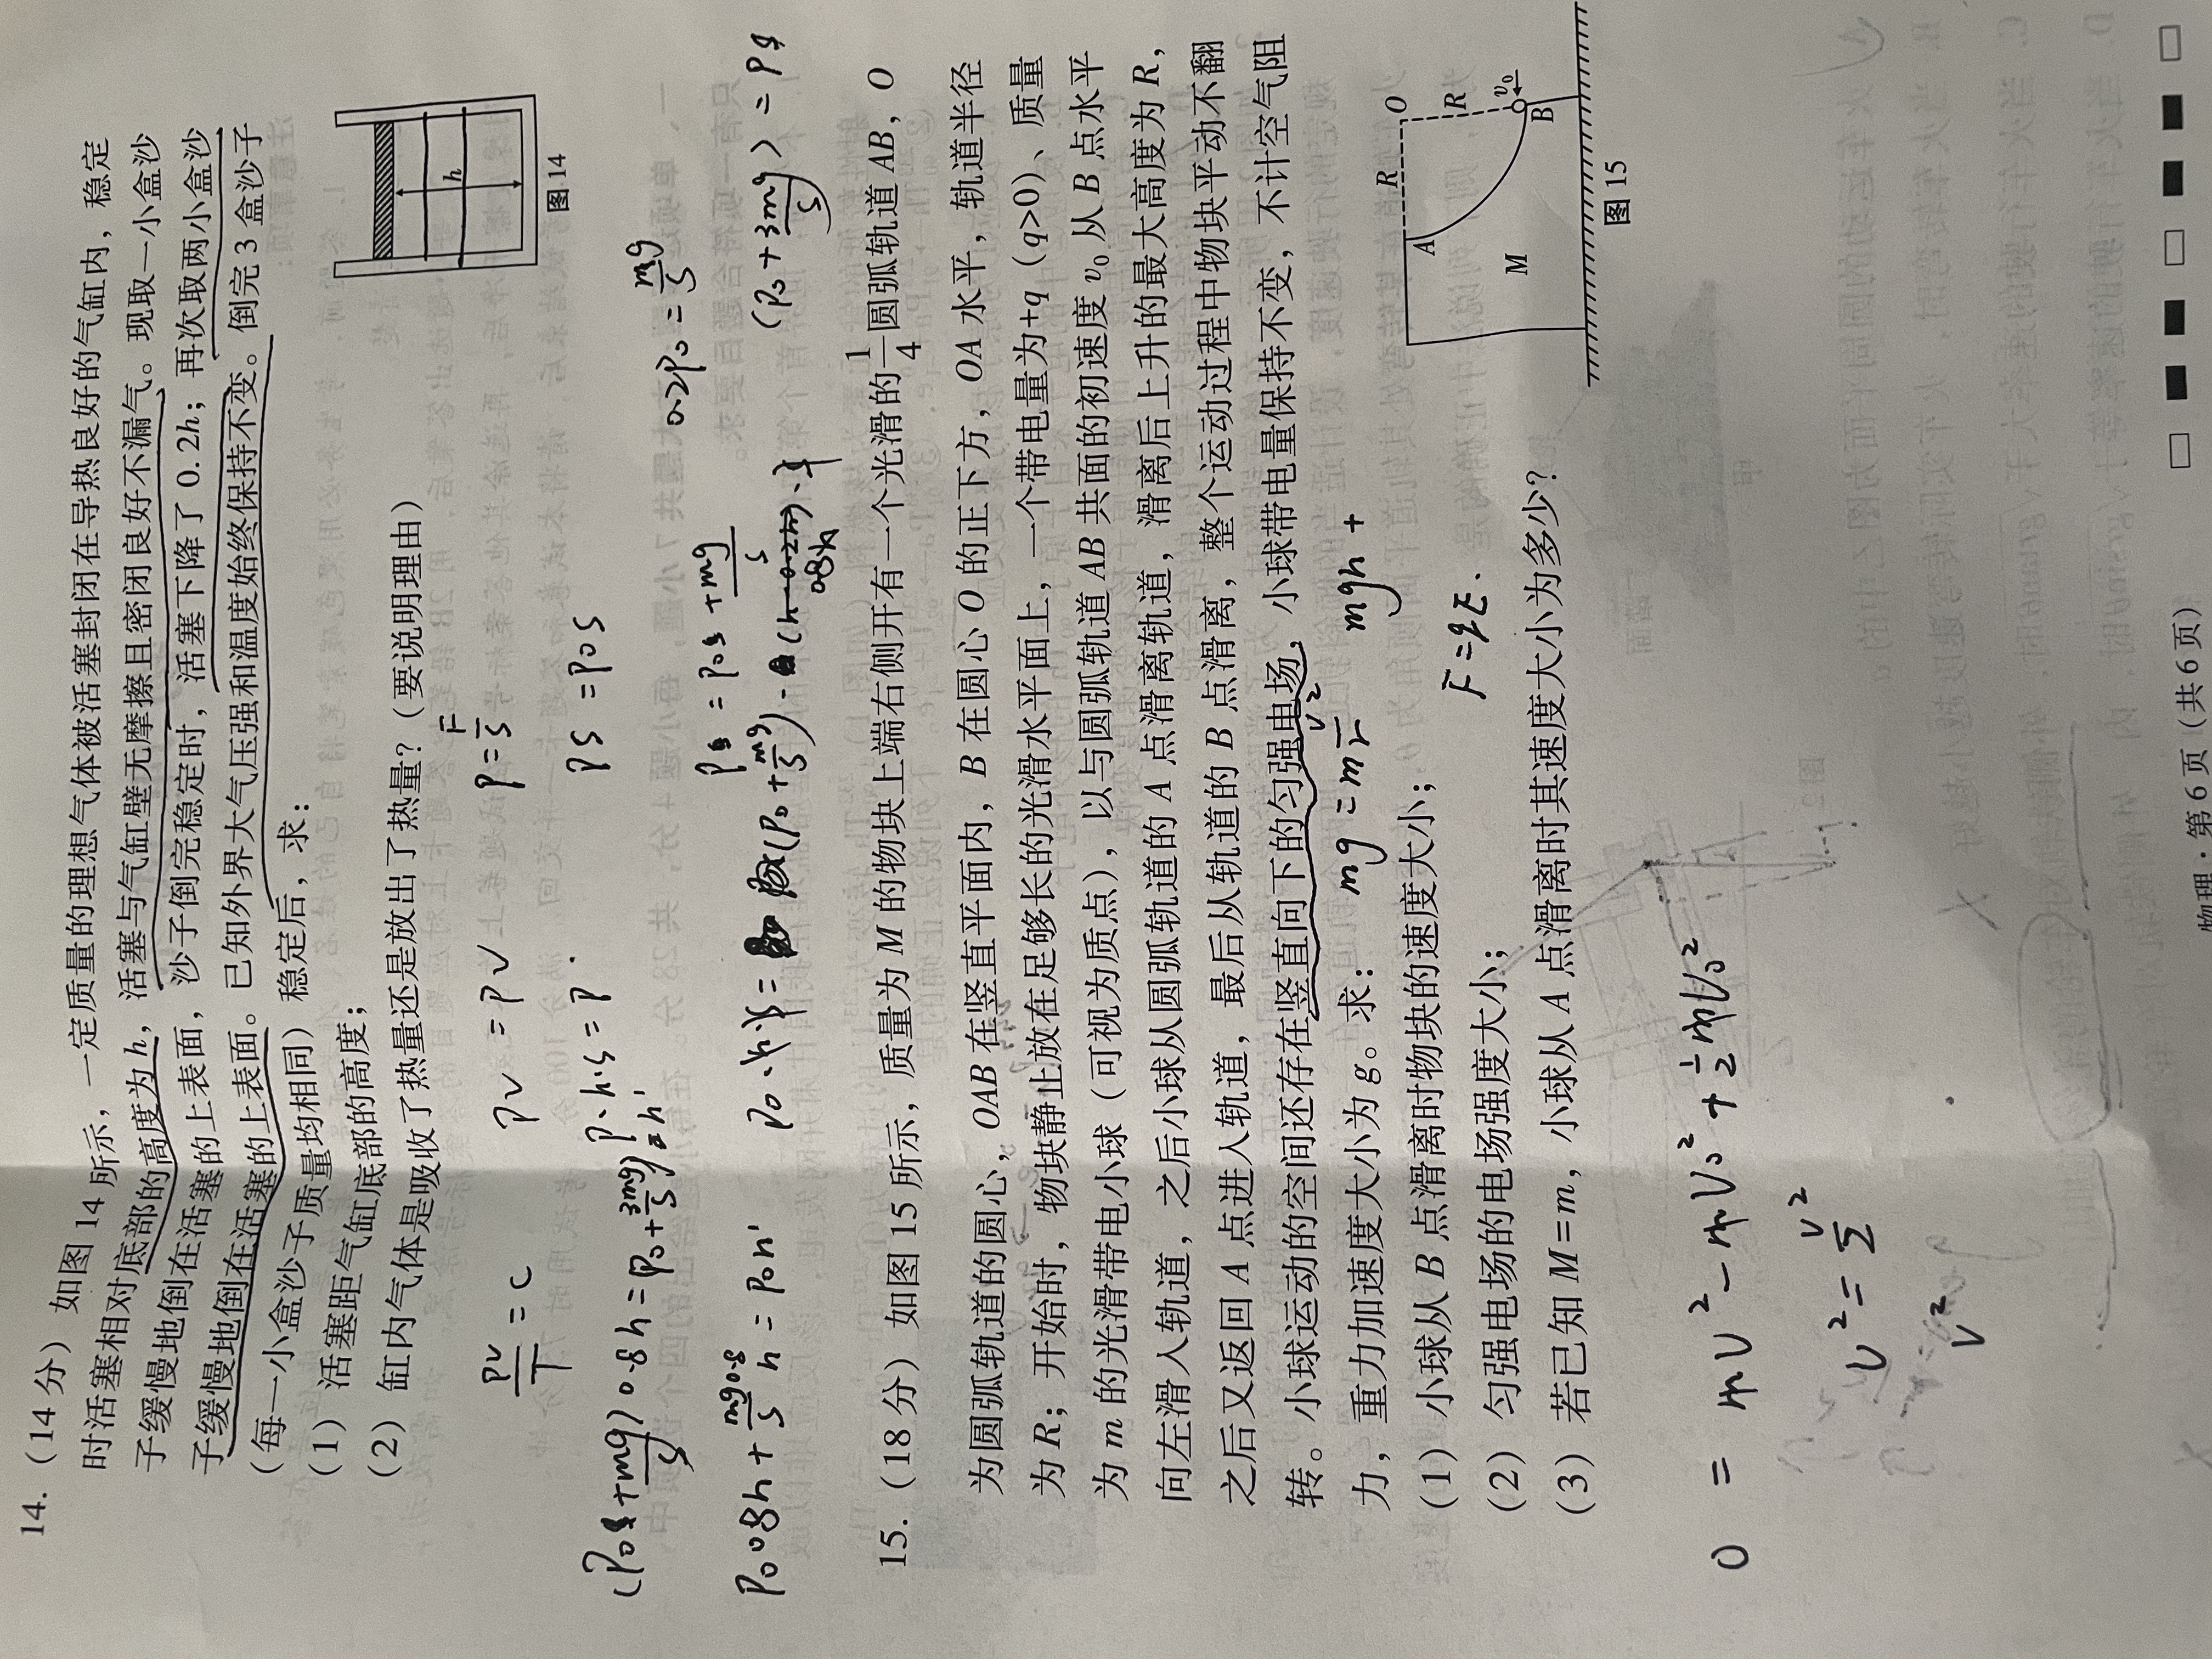 14. (14分) 如图 14 所示，一定质量的理想气体被活塞封闭在导热良好的气缸内，稳定
时活塞相对底部的高度为 h，活塞与气缸壁无摩擦且密闭良好不漏气。现取一小盒沙
子缓慢地倒在活塞的上表面，沙子倒完稳定时，活塞下降了 0.2h；再次取两小盒沙
子缓慢地倒在活塞的上表面。已知外界大气压强和温度始终保持不变。倒完 3 盒沙子
(每一小盒沙子质量均相同) 稳定后，求：
(1) 活塞距气缸底部的高度；
(2) 缸内气体是吸收了热量还是放出了热量？(要说明理由)
h
图 14
PV/T = C
PV = PV
P = F/S
PS = P0S
0.2P0 = mg/S
(P0 + 3mg/S) = P
15. (18分) 如图 15 所示，质量为 M 的物块上端右侧开有一个光滑的 1/4 圆弧轨道 AB，O
为圆弧轨道的圆心，OAB 在竖直平面内，B 在圆心 O 的正下方，OA 水平，轨道半径
为 R；开始时，物块静止放在足够长的光滑水平面上，一个带电量为+q (q>0)、质量
为 m 的光滑带电小球 (可视为质点)，以与圆弧轨道 AB 共面的初速度 v0 从 B 点水平
向左滑入轨道，之后小球从圆弧轨道的 A 点滑离轨道，滑离后上升的最大高度为 R，
之后又返回 A 点进入轨道，最后从轨道的 B 点滑离，整个运动过程中物块平动不翻
转。小球运动的空间还存在竖直向下的匀强电场，小球带电量保持不变，不计空气阻
力，重力加速度大小为 g。求：
(1) 小球从 B 点滑离时物块的速度大小；
(2) 匀强电场的电场强度大小；
(3) 若已知 M=m，小球从 A 点滑离时其速度大小为多少？
mg = m v²/r
mgh +
F = qE.
R
O
A
R
M
v0
B
图 15
0 = mv² - mv0² + 1/2 mv0²
v² = v²/2
v²
物理·第 6 页 (共 6 页)